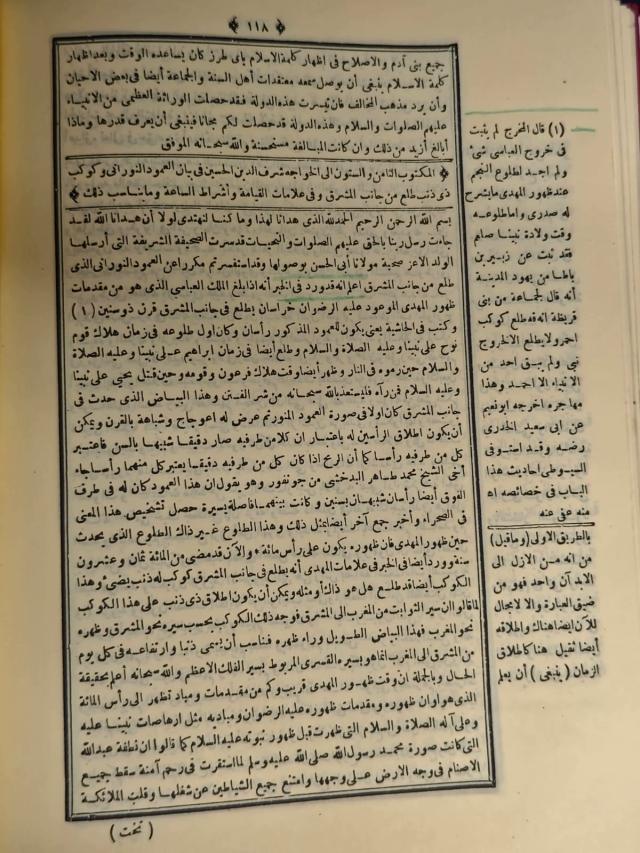 ﴿ ١١٨ ﴾
جميع بنى آدم والاصلاح فى اظهار كلمة الاسلام باى طرز كان يساعده الوقت وبعد اظهار
كلمة الاسلام ينبغى أن يوصل سمعه معتقدات أهل السنة والجماعة أيضا فى بعض الاحيان
وأن يرد مذهب المخالف فان تيسرت هذه الدولة فقد حصلت الوراثة العظمى من الانبياء
عليهم الصلوات والسلام وهذه الدولة قد حصلت لكم مجانا فينبغى أن يعرف قدرها وماذا
أبالغ أزيد من ذلك وان كانت المبالغة مستحسنة والله سبحانه الموفق
﴿ المكتوب الثامن والستون الى الخواجه شرف الدين الحسين فى بيان العمود النورانى وكوكب
ذى ذنب طلع من جانب المشرق وفى علامات القيامة وأشراط الساعة وما يناسب ذلك ﴾
بسم الله الرحمن الرحيم الحمد لله الذى هدانا لهذا وما كنا لنهتدى لولا أن هدانا الله لقد
جاءت رسل ربنا بالحق عليهم الصلوات والتحيات قد سرت الصحيفة الشريفة التى أرسلها
الولد الاعز صحبة مولانا أبى الحسن بوصولها وقد استفسرتم مكررا عن العمود النورانى الذى
طلع من جانب المشرق اعلم انه قد ورد فى الخبر أنه اذا بلغ الملك العباسى الذى هو من مقدمات
ظهور المهدى الموعود عليه الرضوان خراسان يطلع فى جانب المشرق قرن ذو سنين (١)
وكتب فى الحاشية يعنى يكون العمود المذكور رأسان وكان اول طلوعه فى زمان هلاك قوم
نوح على نبينا وعليه الصلاة والسلام وطلع أيضا فى زمان ابراهيم على نبينا وعليه الصلاة
والسلام حين رموه فى النار وظهر أيضا وقت هلاك فرعون وقومه وحين قتل يحيى على نبينا
وعليه السلام فمن رآه فليستعذ بالله سبحانه من شر الفتن وهذا البياض الذى حدث فى
جانب المشرق كان اولا فى صورة العمود المنور ثم عرض له اعوجاج وشباهة بالقرن ويمكن
أن يكون اطلاق الرأسين له باعتبار ان كلا من طرفيه صار دقيقا شبيها بالسن فاعتبر
كل من طرفيه رأسا كما أن الرمح اذا كان كل من طرفيه دقيقا يعتبر كل منهما رأسا جاء
أخى الشيخ محمد طاهر البدخشى من جونفور وهو يقول ان هذا العمود كان له فى طرف
الفوق أيضا رأسان شبيهان بسنين وكانت بينهما فاصلة يسيرة حصل تشخيص هذا المعنى
فى الصحراء وأخبر جمع آخر أيضا بمثل ذلك وهذا الطلوع غير ذاك الطلوع الذى يحدث
حين ظهور المهدى فان ظهوره يكون على رأس مائة والآن قد مضى من المائة ثمان وعشرون
سنة وورد أيضا فى الخبر فى علامات المهدى أنه يطلع فى جانب المشرق كوكب له ذنب يضىء وهذا
الكوكب أيضا قد طلع هل هو ذاك أو مثله ويمكن أن يكون اطلاق ذى ذنب على هذا الكوكب
لما قالوا ان سير الثوابت من المغرب الى المشرق فوجه ذلك الكوكب بحسب سيره نحو المشرق وظهره
نحو المغرب فهذا البياض الطويل وراء ظهره فناسب أن يسمى ذنبا وارتفاعه فى كل يوم
من المشرق الى المغرب انما هو بسيره القسرى المربوط بسير الفلك الاعظم والله سبحانه أعلم بحقيقة
الحال وبالجملة ان وقت ظهور المهدى قريب وكم من مقدمات ومباد تظهر الى رأس المائة
الذى هو اوان ظهوره ومقدمات ظهوره عليه الرضوان ومباديه مثل ارهاصات نبينا عليه
وعلى آله الصلاة والسلام التى ظهرت قبل ظهور نبوته عليه السلام كما قالوا ان نطفة عبد الله
التى كانت صورة محمد رسول الله صلى الله عليه وسلم لما استقرت فى رحم آمنة سقط جميع
الاصنام فى وجه الارض على وجهها وامتنع جميع الشياطين عن شغلها وقلبت الملائكة
( تخت )
(١) قال المخرج لم يثبت
فى خروج العباسى شئ
ولم اجد اطلوع النجم
عند ظهور المهدى ما يشرح
له صدرى واما طلوعه
وقت ولادة نبينا صلعم
فقد ثبت عن زبير بن
باطا من يهود المدينة
أنه قال لجماعة من بنى
قريظة انه قد طلع كوكب
احمر ولا يطلع الا لخروج
نبى ولم يبق احد من
الانبياء الا احمد وهذا
مهاجره اخرجه ابو نعيم
عن ابى سعيد الخدرى
رضه وقد استوفى
السيوطى احاديث هذا
الباب فى خصائصه اه
منه عفى عنه
بالطريق الاولى (وما قيل)
من انه من الازل الى
الابد آن واحد فهو من
ضيق العبارة والا لا مجال
للآن ايضا هناك واطلاقه
أيضا ثقيل هنا كاطلاق
الزمان (ينبغى) أن يعلم